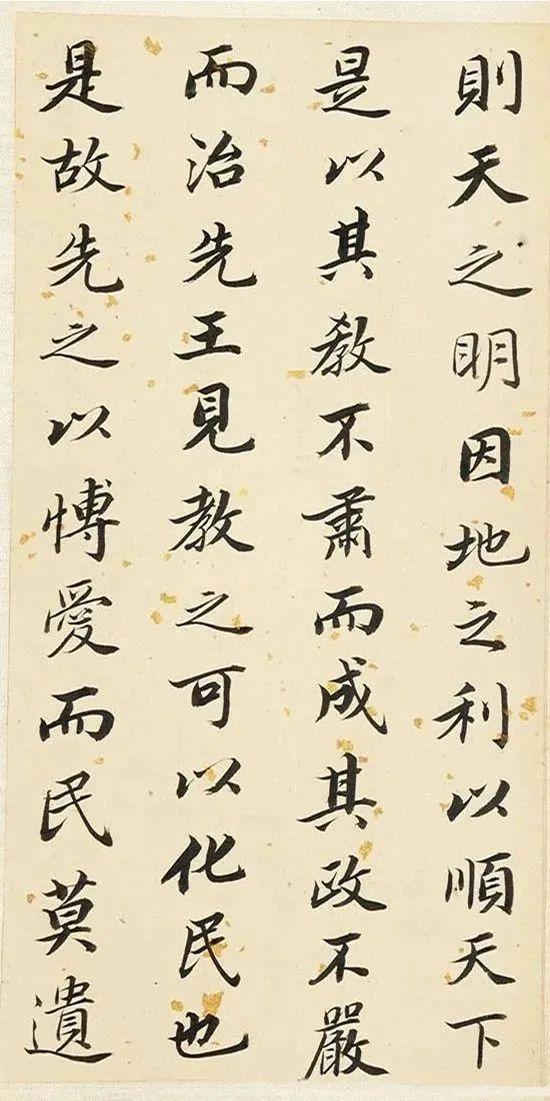 則天之明因地之利以順天下
是以其教不肅而成其政不嚴
而治先王見教之可以化民也
是故先之以愽愛而民莫遺